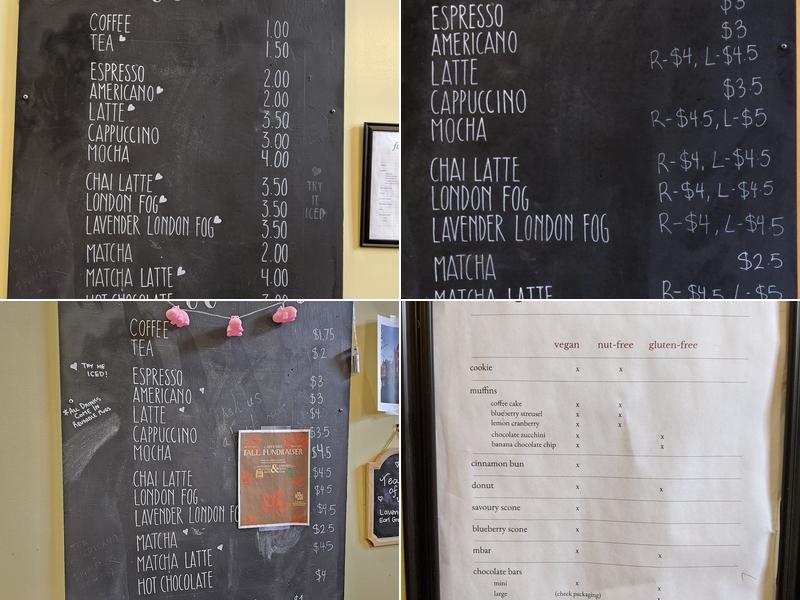 COFFEE 1.00
TEA 1.50
ESPRESSO 2.00
AMERICANO 2.00
LATTE 3.50
CAPPUCCINO 3.00
MOCHA 4.00
CHAI LATTE 3.50
LONDON FOG 3.50
LAVENDER LONDON FOG 3.50
MATCHA 2.00
MATCHA LATTE 4.00
HOT CHOCOLATE 3.00
TRY
IT
ICED
ESPRESSO $3
AMERICANO $3
LATTE R-$4, L-$4.5
CAPPUCCINO $3.5
MOCHA R-$4.5, L-$5
CHAI LATTE R-$4, L-$4.5
LONDON FOG R-$4, L-$4.5
LAVENDER LONDON FOG R-$4, L-$4.5
MATCHA $2.5
MATCHA LATTE R-$4.5, L-$5
COFFEE $1.75
TEA $2
TRY ME
ICED!
*ALL DRINKS
COME IN
REUSABLE MUGS
ESPRESSO $3
AMERICANO $3
LATTE $4
CAPPUCCINO $3.5
MOCHA $4.5
CHAI LATTE $4.5
LONDON FOG $4.5
LAVENDER LONDON FO $4.5
MATCHA $2.5
MATCHA LATTE $4.5
HOT CHOCOLATE $4
FALL FUNDRAISER
&
Tea
of
Laven
Earl Gre
vegan nut-free gluten-free
cookie x x
muffins
coffee cake x x
blueberry streusel x x
lemon cranberry x x
chocolate zucchini x x
banana chocolate chip x x
cinnamon bun x
donut x x
savoury scone x
blueberry scone x
mbar x x
chocolate bars
mini x x
large (check packaging) x